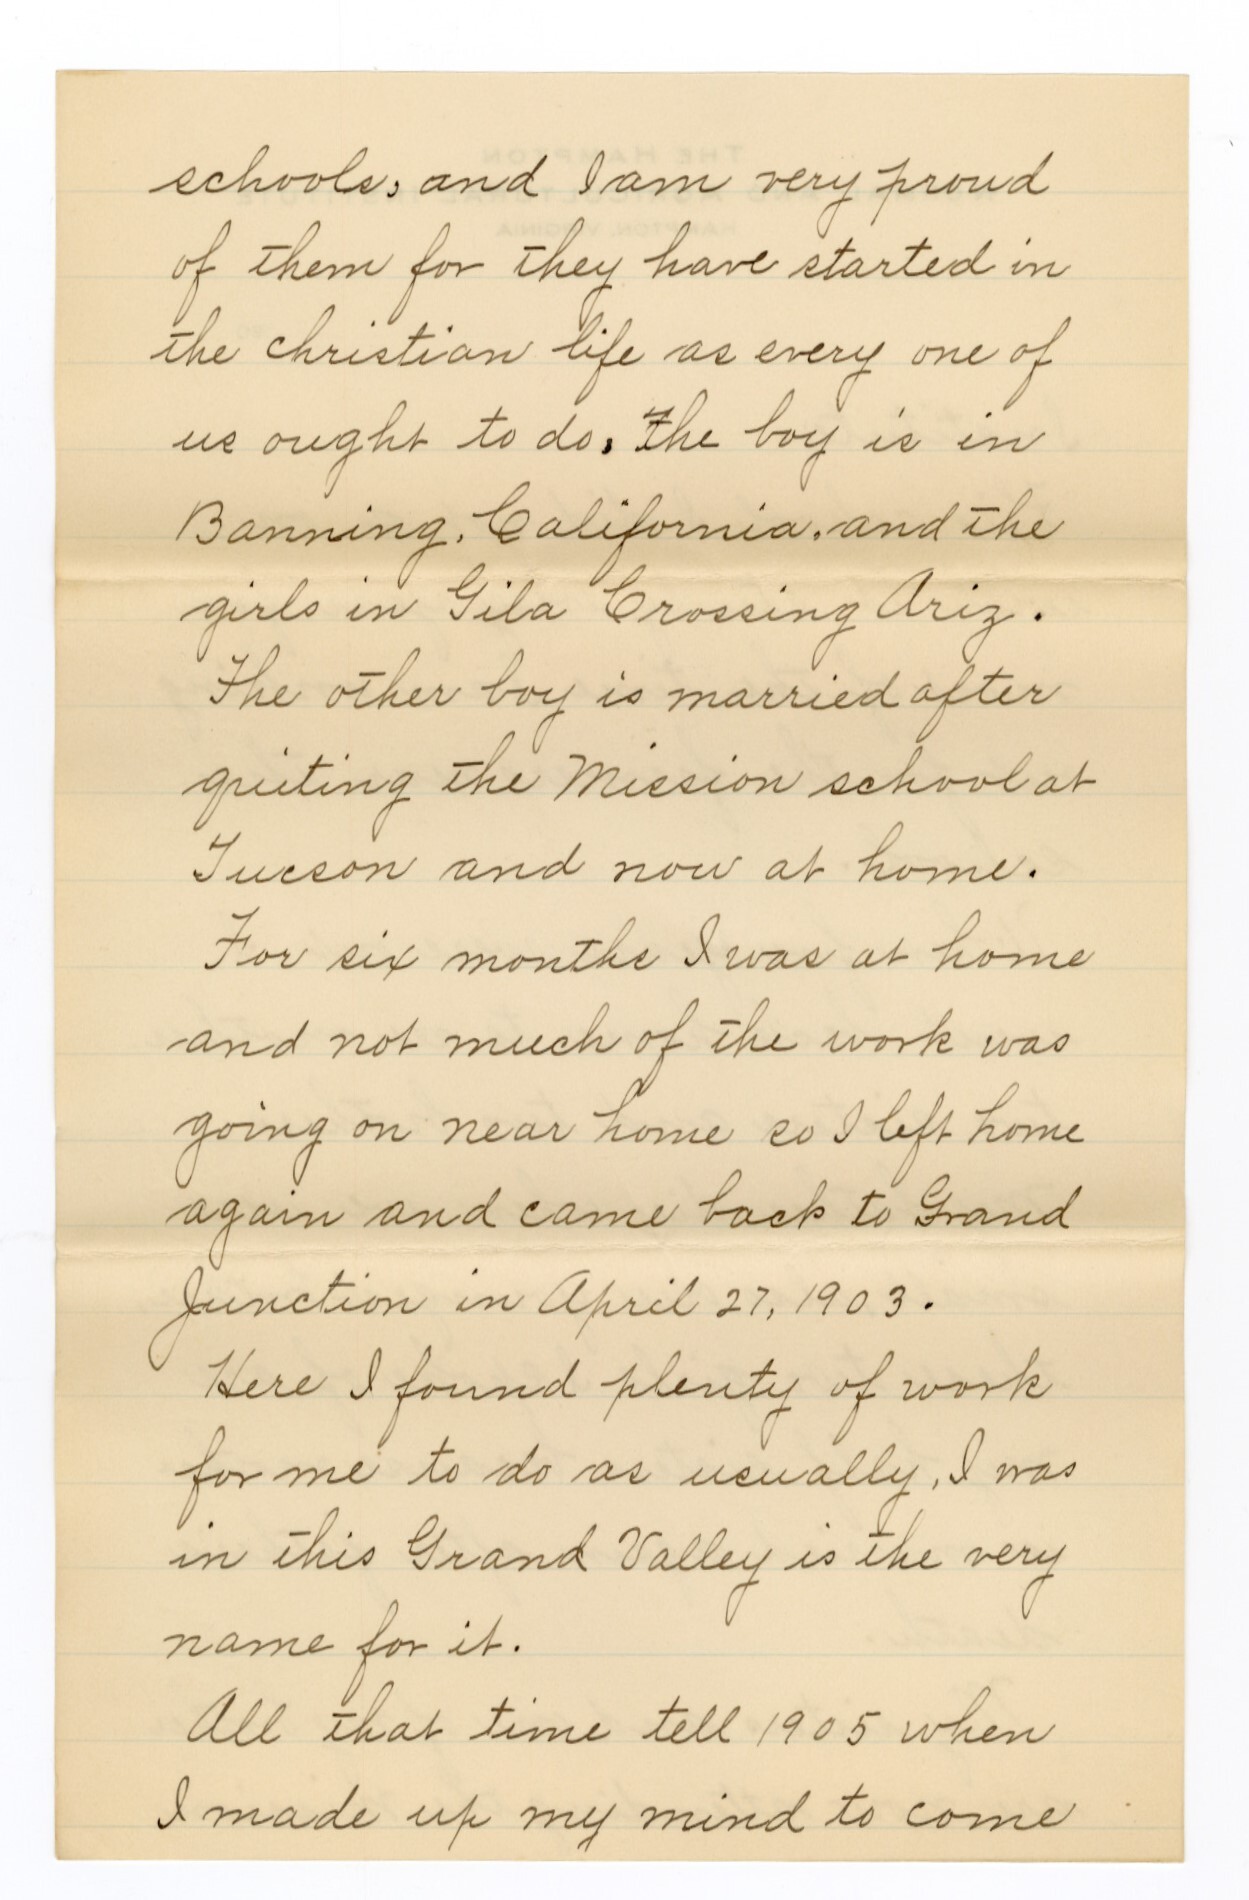 schools, and I am very proud
of them for they have started in
the christian life as every one of
us ought to do. The boy is in
Banning, California. and the
girls in Gila Crossing Ariz.
The other boy is married after
quiting the Mission school at
Tucson and now at home.
For six months I was at home
and not much of the work was
going on near home so I left home
again and came back to Grand
Junction in April 27, 1903.
Here I found plenty of work
for me to do as usually, I was
in this Grand Valley is the very
name for it.
All that time tell 1905 when
I made up my mind to come